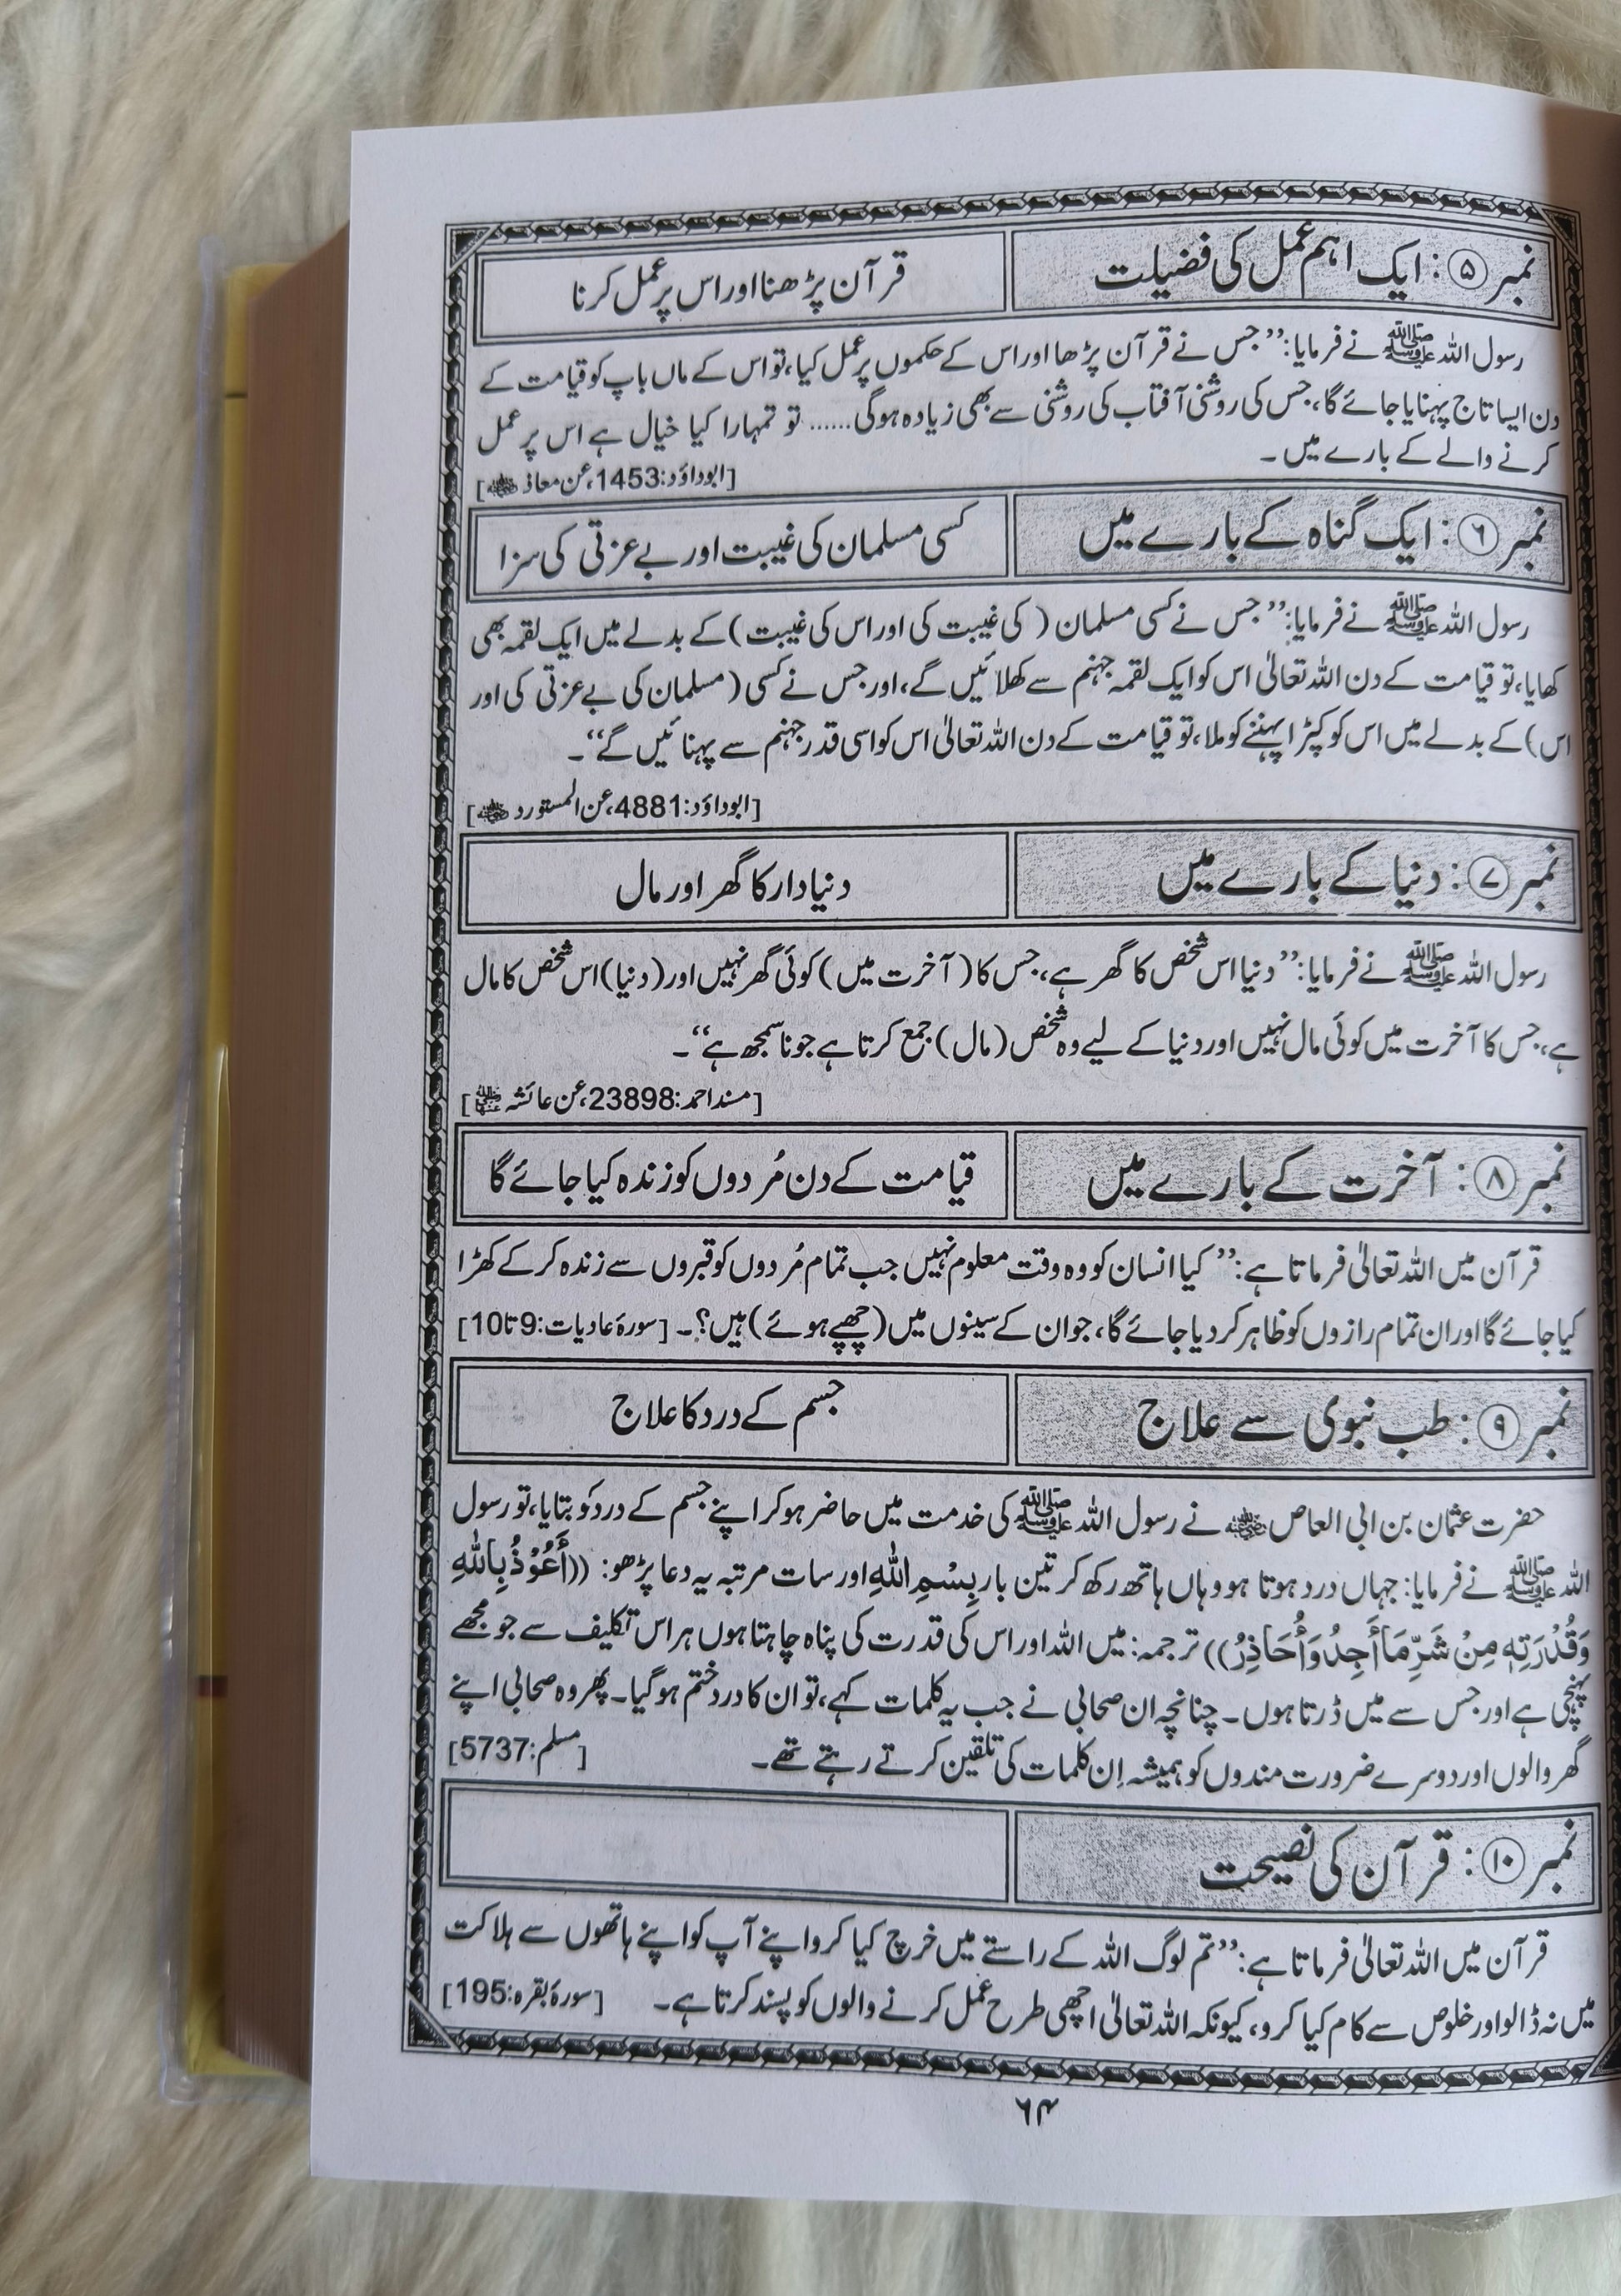 نمبر ⑤: ایک اہم عمل کی فضیلت
قرآن پڑھنا اور اس پر عمل کرنا
رسول اللہ ﷺ نے فرمایا: ”جس نے قرآن پڑھا اور اس کے حکموں پر عمل کیا، تو اس کے ماں باپ کو قیامت کے
دن ایسا تاج پہنایا جائے گا، جس کی روشنی آفتاب کی روشنی سے بھی زیادہ ہوگی...... تو تمہارا کیا خیال ہے اس پر عمل
کرنے والے کے بارے میں ۔
[ابوداؤد:1453، عن معاذ ؓ]
نمبر ⑥: ایک گناہ کے بارے میں
کسی مسلمان کی غیبت اور بے عزتی کی سزا
رسول اللہ ﷺ نے فرمایا: ”جس نے کسی مسلمان (کی غیبت کی اور اس کی غیبت) کے بدلے میں ایک لقمہ بھی
کھایا، تو قیامت کے دن اللہ تعالیٰ اس کو ایک لقمہ جہنم سے کھلائیں گے، اور جس نے کسی (مسلمان کی بے عزتی کی اور
اس) کے بدلے میں اس کو کپڑا پہننے کو ملا، تو قیامت کے دن اللہ تعالیٰ اس کو اسی قدر جہنم سے پہنائیں گے“۔
[ابوداؤد:4881، عن المستورد ؓ]
نمبر ⑦: دنیا کے بارے میں
دنیا دار کا گھر اور مال
رسول اللہ ﷺ نے فرمایا: ”دنیا اس شخص کا گھر ہے، جس کا (آخرت میں) کوئی گھر نہیں اور (دنیا) اس شخص کا مال
ہے، جس کا آخرت میں کوئی مال نہیں اور دنیا کے لیے وہ شخص (مال) جمع کرتا ہے جو ناسمجھ ہے“۔
[مسند احمد:23898، عن عائشہ ؓ]
نمبر ⑧: آخرت کے بارے میں
قیامت کے دن مُردوں کو زندہ کیا جائے گا
قرآن میں اللہ تعالیٰ فرماتا ہے: ”کیا انسان کو وہ وقت معلوم نہیں جب تمام مُردوں کو قبروں سے زندہ کر کے کھڑا
کیا جائے گا اور ان تمام رازوں کو ظاہر کر دیا جائے گا، جو ان کے سینوں میں (چھپے ہوئے) ہیں؟۔ [سورۂ عادیات:9 تا 10]
نمبر ⑨: طب نبوی سے علاج
جسم کے درد کا علاج
حضرت عثمان بن ابی العاص ؓ نے رسول اللہ ﷺ کی خدمت میں حاضر ہو کر اپنے جسم کے درد کو بتایا، تو رسول
اللہ ﷺ نے فرمایا: جہاں درد ہوتا ہو وہاں ہاتھ رکھ کر تین بار بِسْمِ اللّٰهِ اور سات مرتبہ یہ دعا پڑھو: ((أَعُوْذُ بِاللّٰهِ
وَقُدْرَتِهٖ مِنْ شَرِّ مَا أَجِدُ وَأُحَاذِرُ)) ترجمہ: میں اللہ اور اس کی قدرت کی پناہ چاہتا ہوں ہر اس تکلیف سے جو مجھے
پہنچی ہے اور جس سے میں ڈرتا ہوں۔ چنانچہ ان صحابی نے جب یہ کلمات کہے، تو ان کا درد ختم ہو گیا۔ پھر وہ صحابی اپنے
گھر والوں اور دوسرے ضرورت مندوں کو ہمیشہ اِن کلمات کی تلقین کرتے رہتے تھے۔ [مسلم:5737]
نمبر ⑩: قرآن کی نصیحت
قرآن میں اللہ تعالیٰ فرماتا ہے: ”تم لوگ اللہ کے راستے میں خرچ کیا کرو اپنے آپ کو اپنے ہاتھوں سے ہلاکت
میں نہ ڈالو اور خلوص سے کام کیا کرو، کیونکہ اللہ تعالیٰ اچھی طرح عمل کرنے والوں کو پسند کرتا ہے۔ [سورۂ بقرہ:195]
۶۴